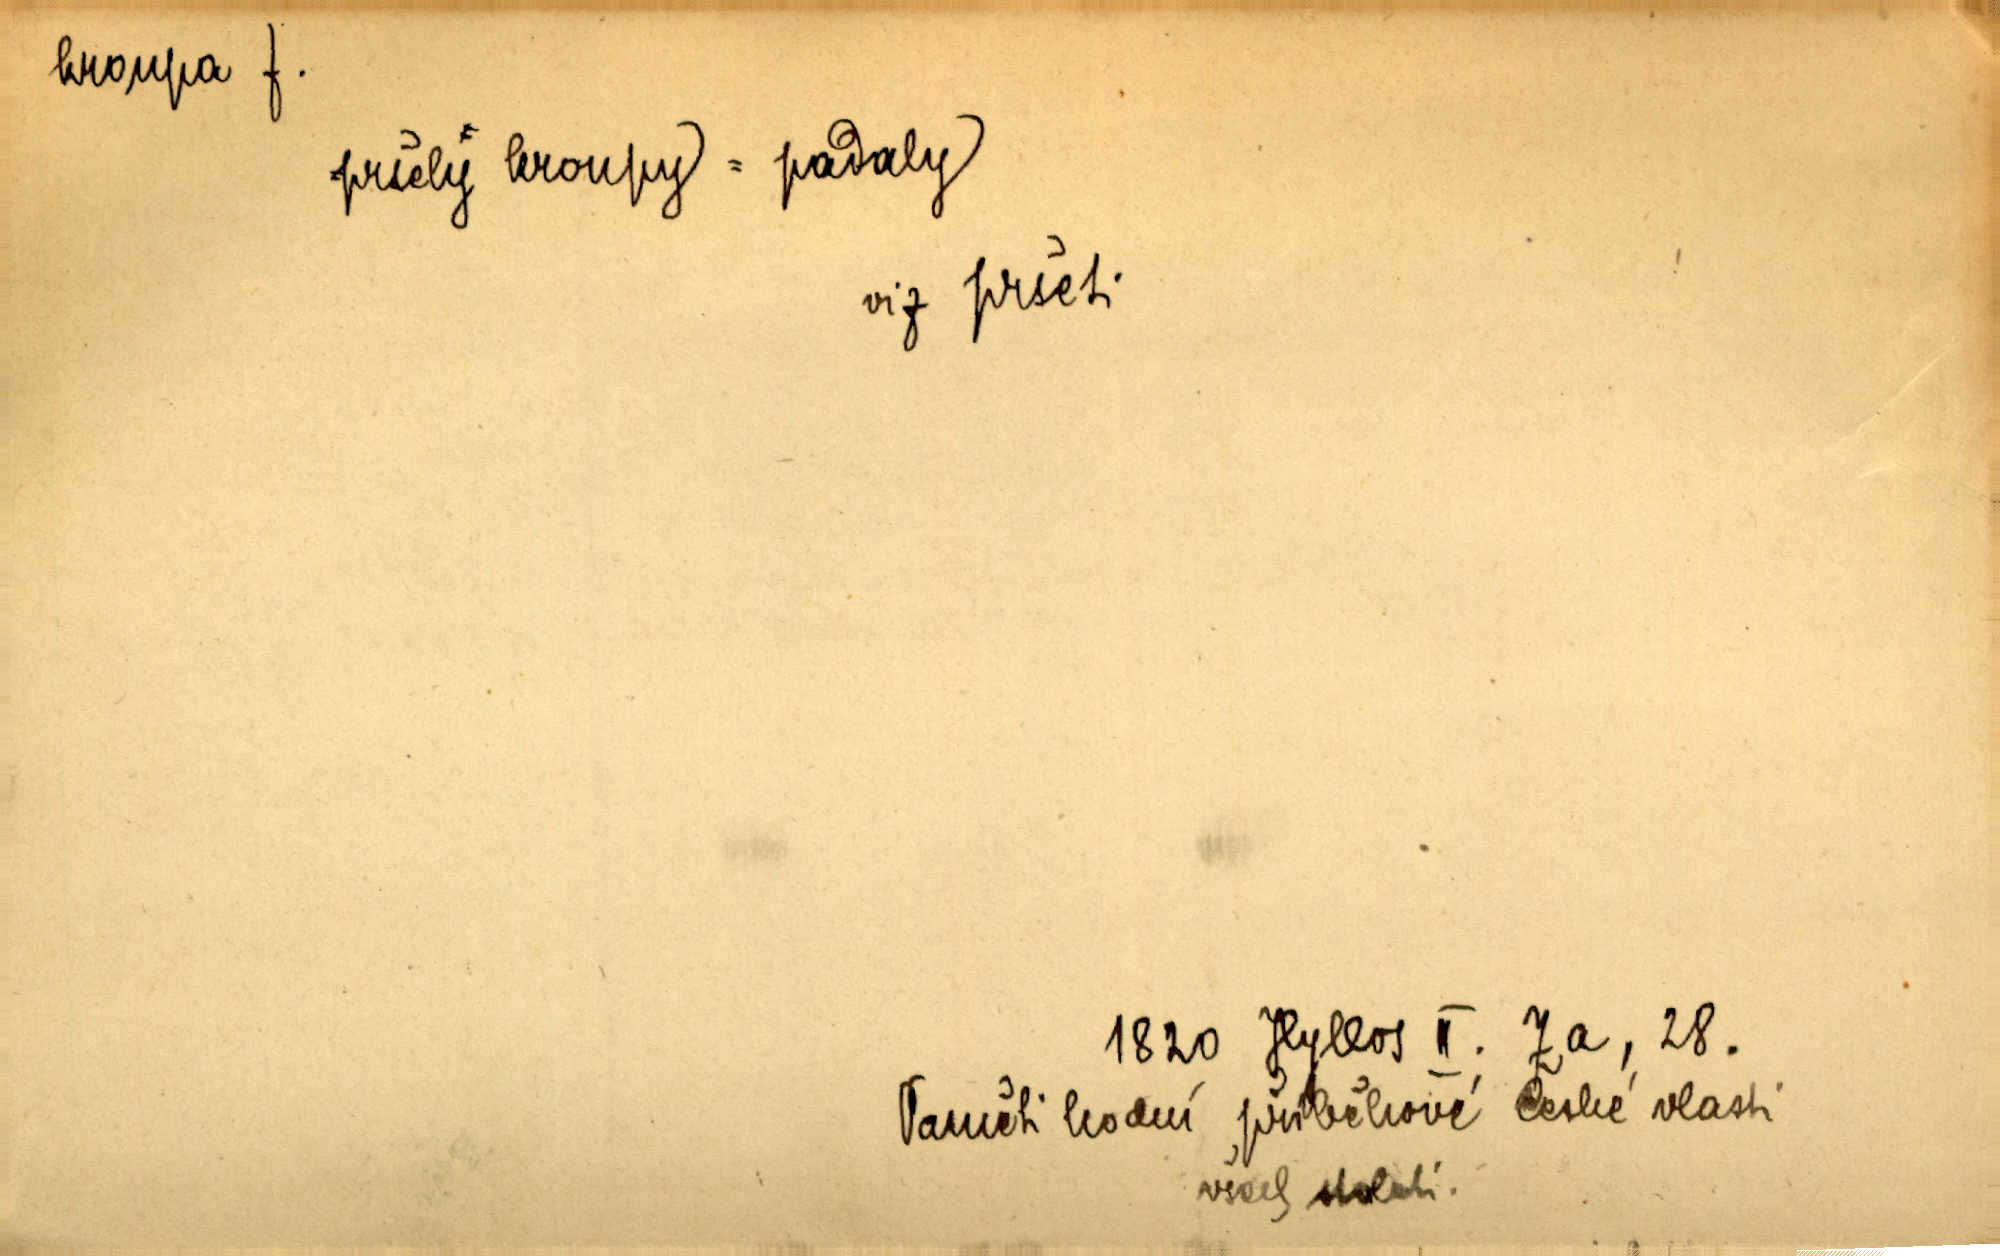 kroupa f.
pršely kroupy = padaly
viz pršeti
1820 Hyllos II. Za, 28.
Paměti hodní příběhové české vlasti
všech století.